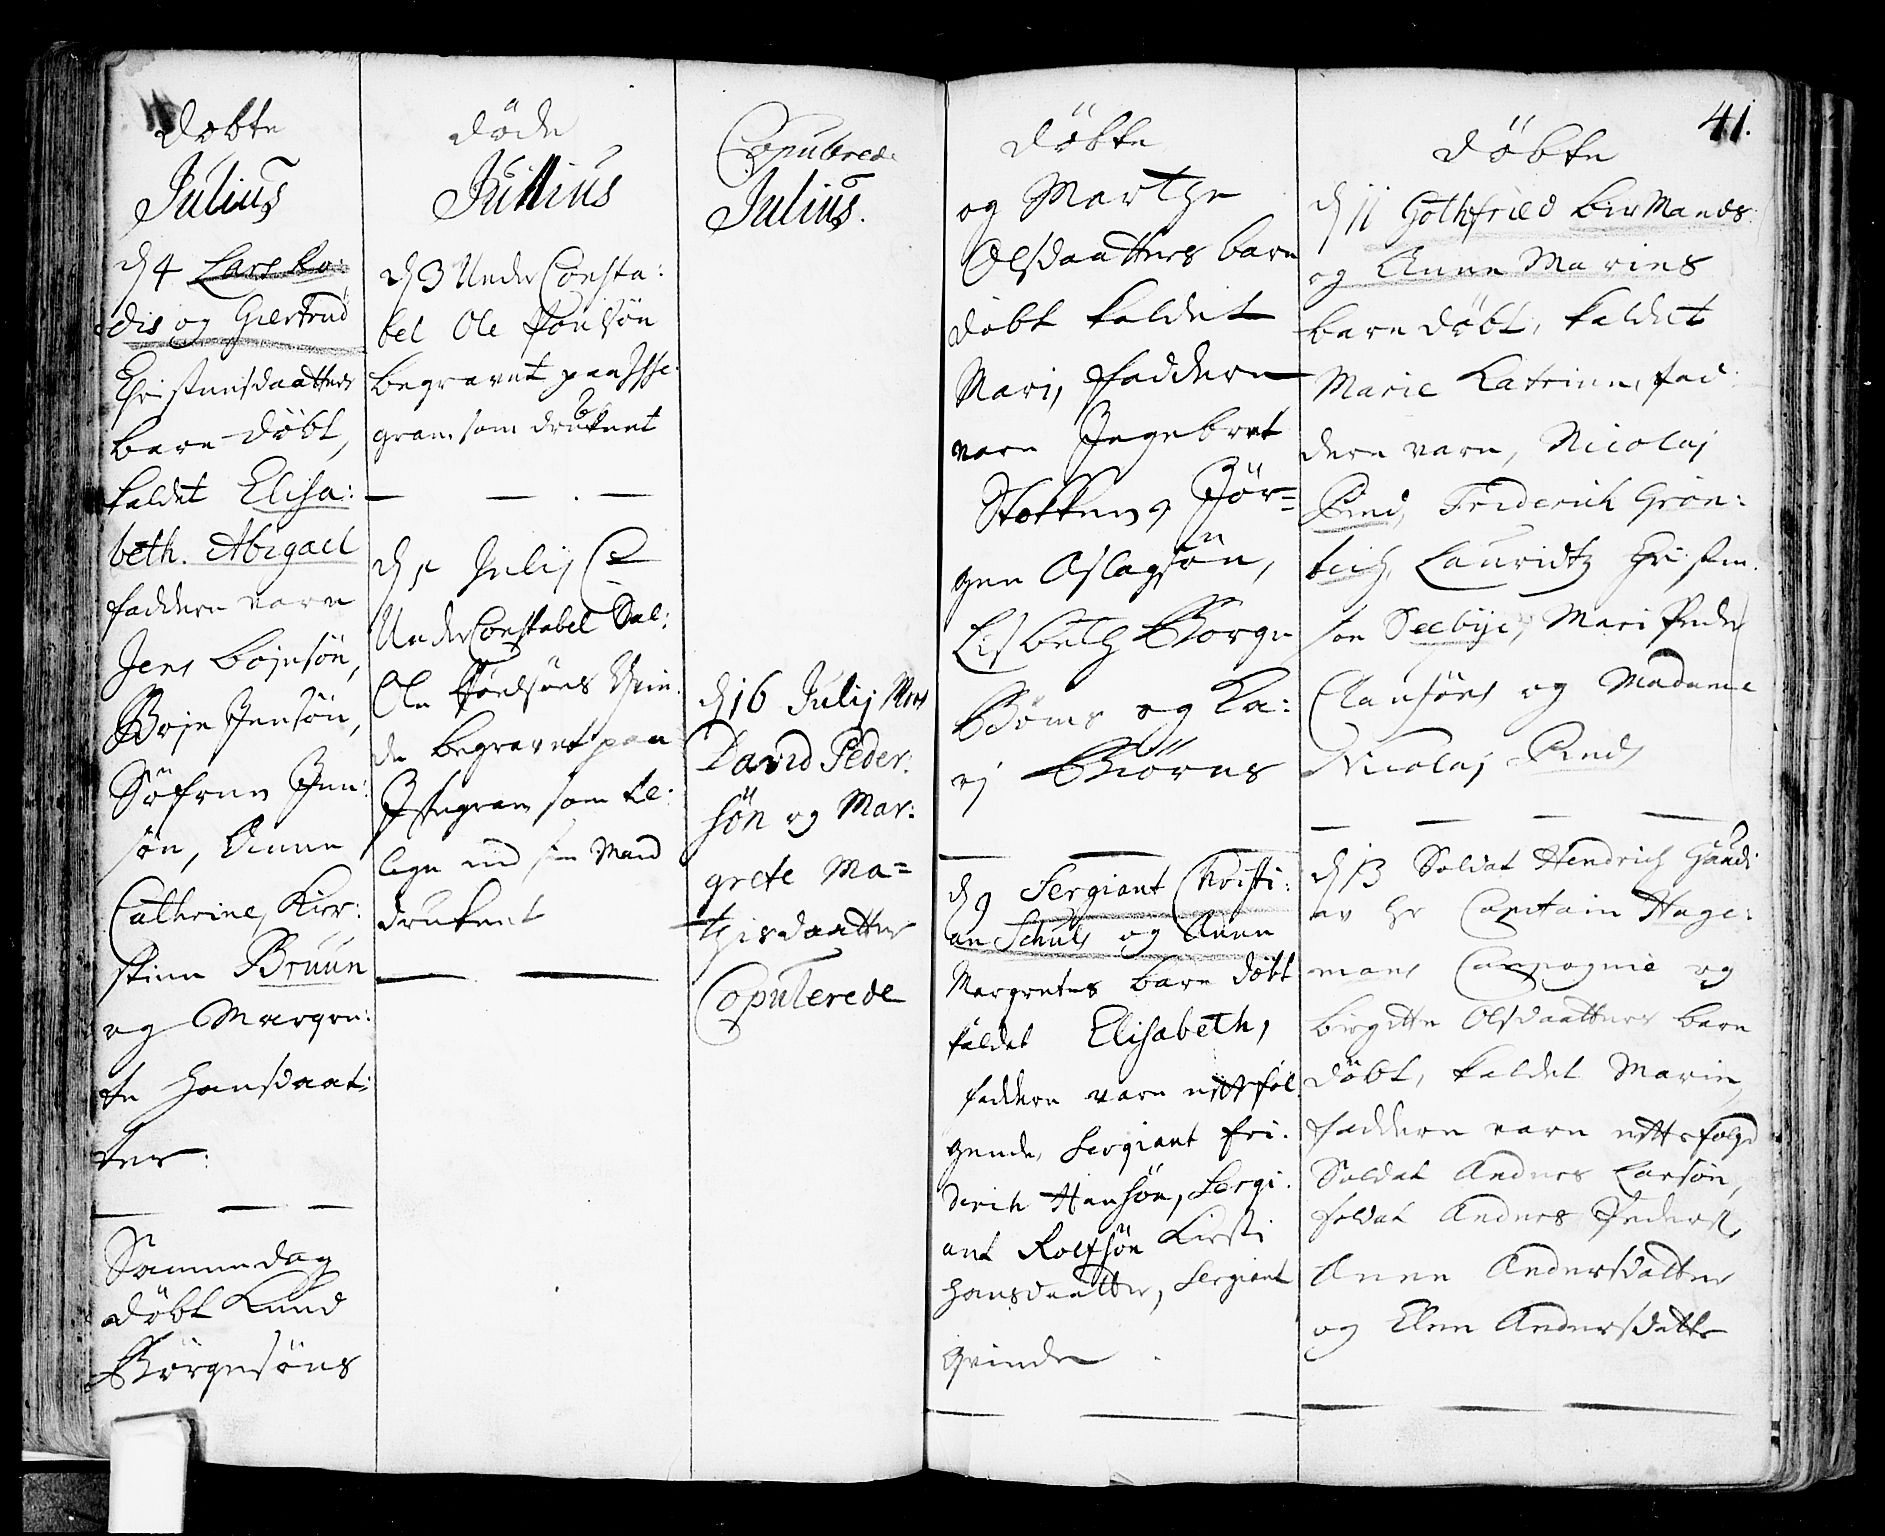 Døbte
Julius
d 4 Lars Ko:
dis og Giertrud
Christensdaatters
barn døbt,
kaldet Elisa:
beth. Abigael
faddere vare
Jens Bojesön,
Boje Jensön,
Söfren Jen:
sön, Anne
Cathrine, Kier:
stine Bruun
og Margre:
te Hansdaat:
ter:
Samme dag
döbt Knud
Börgesöns
Døde
Julius
d 3 Under Consta:
bel Ole
begravet paa
grav, som druknet
d 5 Julij
Under Constabel Sal:
Ole
de begravet paa
som
lige ved sin Mand
druknet
Copulerede
Julius.
d 16 Julij
David Peder:
sön og Mar:
grete Ma=
thisdaatter
Copulerede
Döbte
og Marthe
Olsdaatters barn
döbt kaldet
Mari, faddere
vare Ingebret
Stokken, Jör=
gen Aslagsön,
Lisbeth Borge
og Ka:
rj Biörns
d 9 Sergiant Christi:
an Schuls og Anne
Margretes barn döbt
kaldet Elisabeth,
faddere vare effterföl
gende, Sergiant Fri:
derich Hansön, Sergi:
ant Rolfsön Kirsti
Hansdaatter, Sergiant
qvinden
41.
Döbte
d 11 Gothfried Birmands
og Anne Maries
barn döbt, kaldet
Marie Katrine, fad:
dere vare, Nicolaj
Pind, Friderich Grön:
bech, Lauridtz Christen:
sen Seebye, Mari Peder
Clausöns og Madame
Nicolaj Pinds
d 13 Soldat Hendrich
av Hr Capitain Hage:
mans Compagnie og
Birgitte Olsdaatters barn
döbt, kaldet Marie,
faddere vare effterfölgd
Soldat Anders Larsön,
soldat Anders Peders.
Anne Andersdatter
og Elen Andersdatter